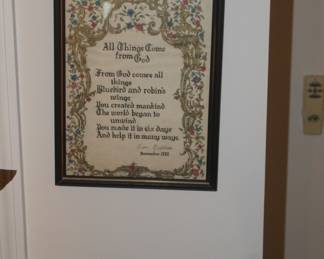 All Things Come
from God
From God comes all
things
Bluebird and robin's
wings
You created mankind
The world began to
unwind
You made it in six days
And help it in many ways.
November